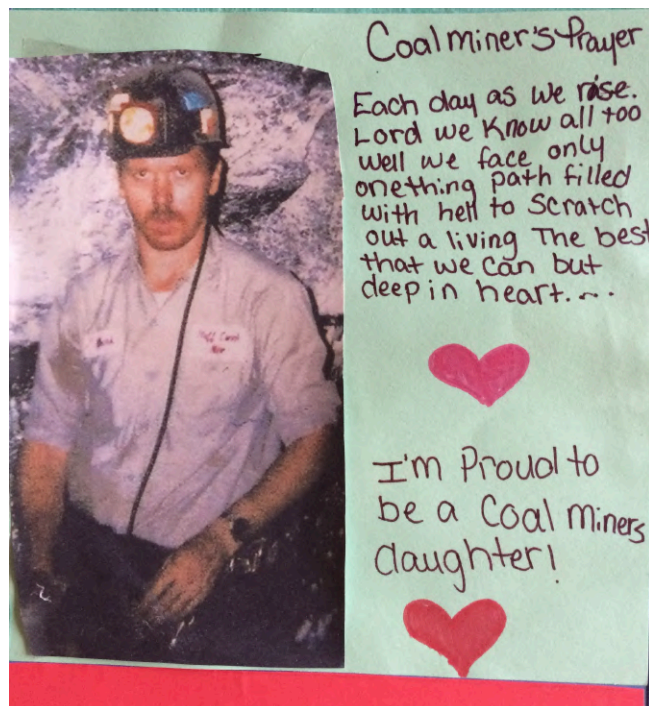 Coalminer's Prayer
Each day as we rise.
Lord we know all too
well we face only
onething path filled
with hell to Scratch
out a living The best
that we can but
deep in heart....
I'm Proud to
be a Coal miners
daughter!